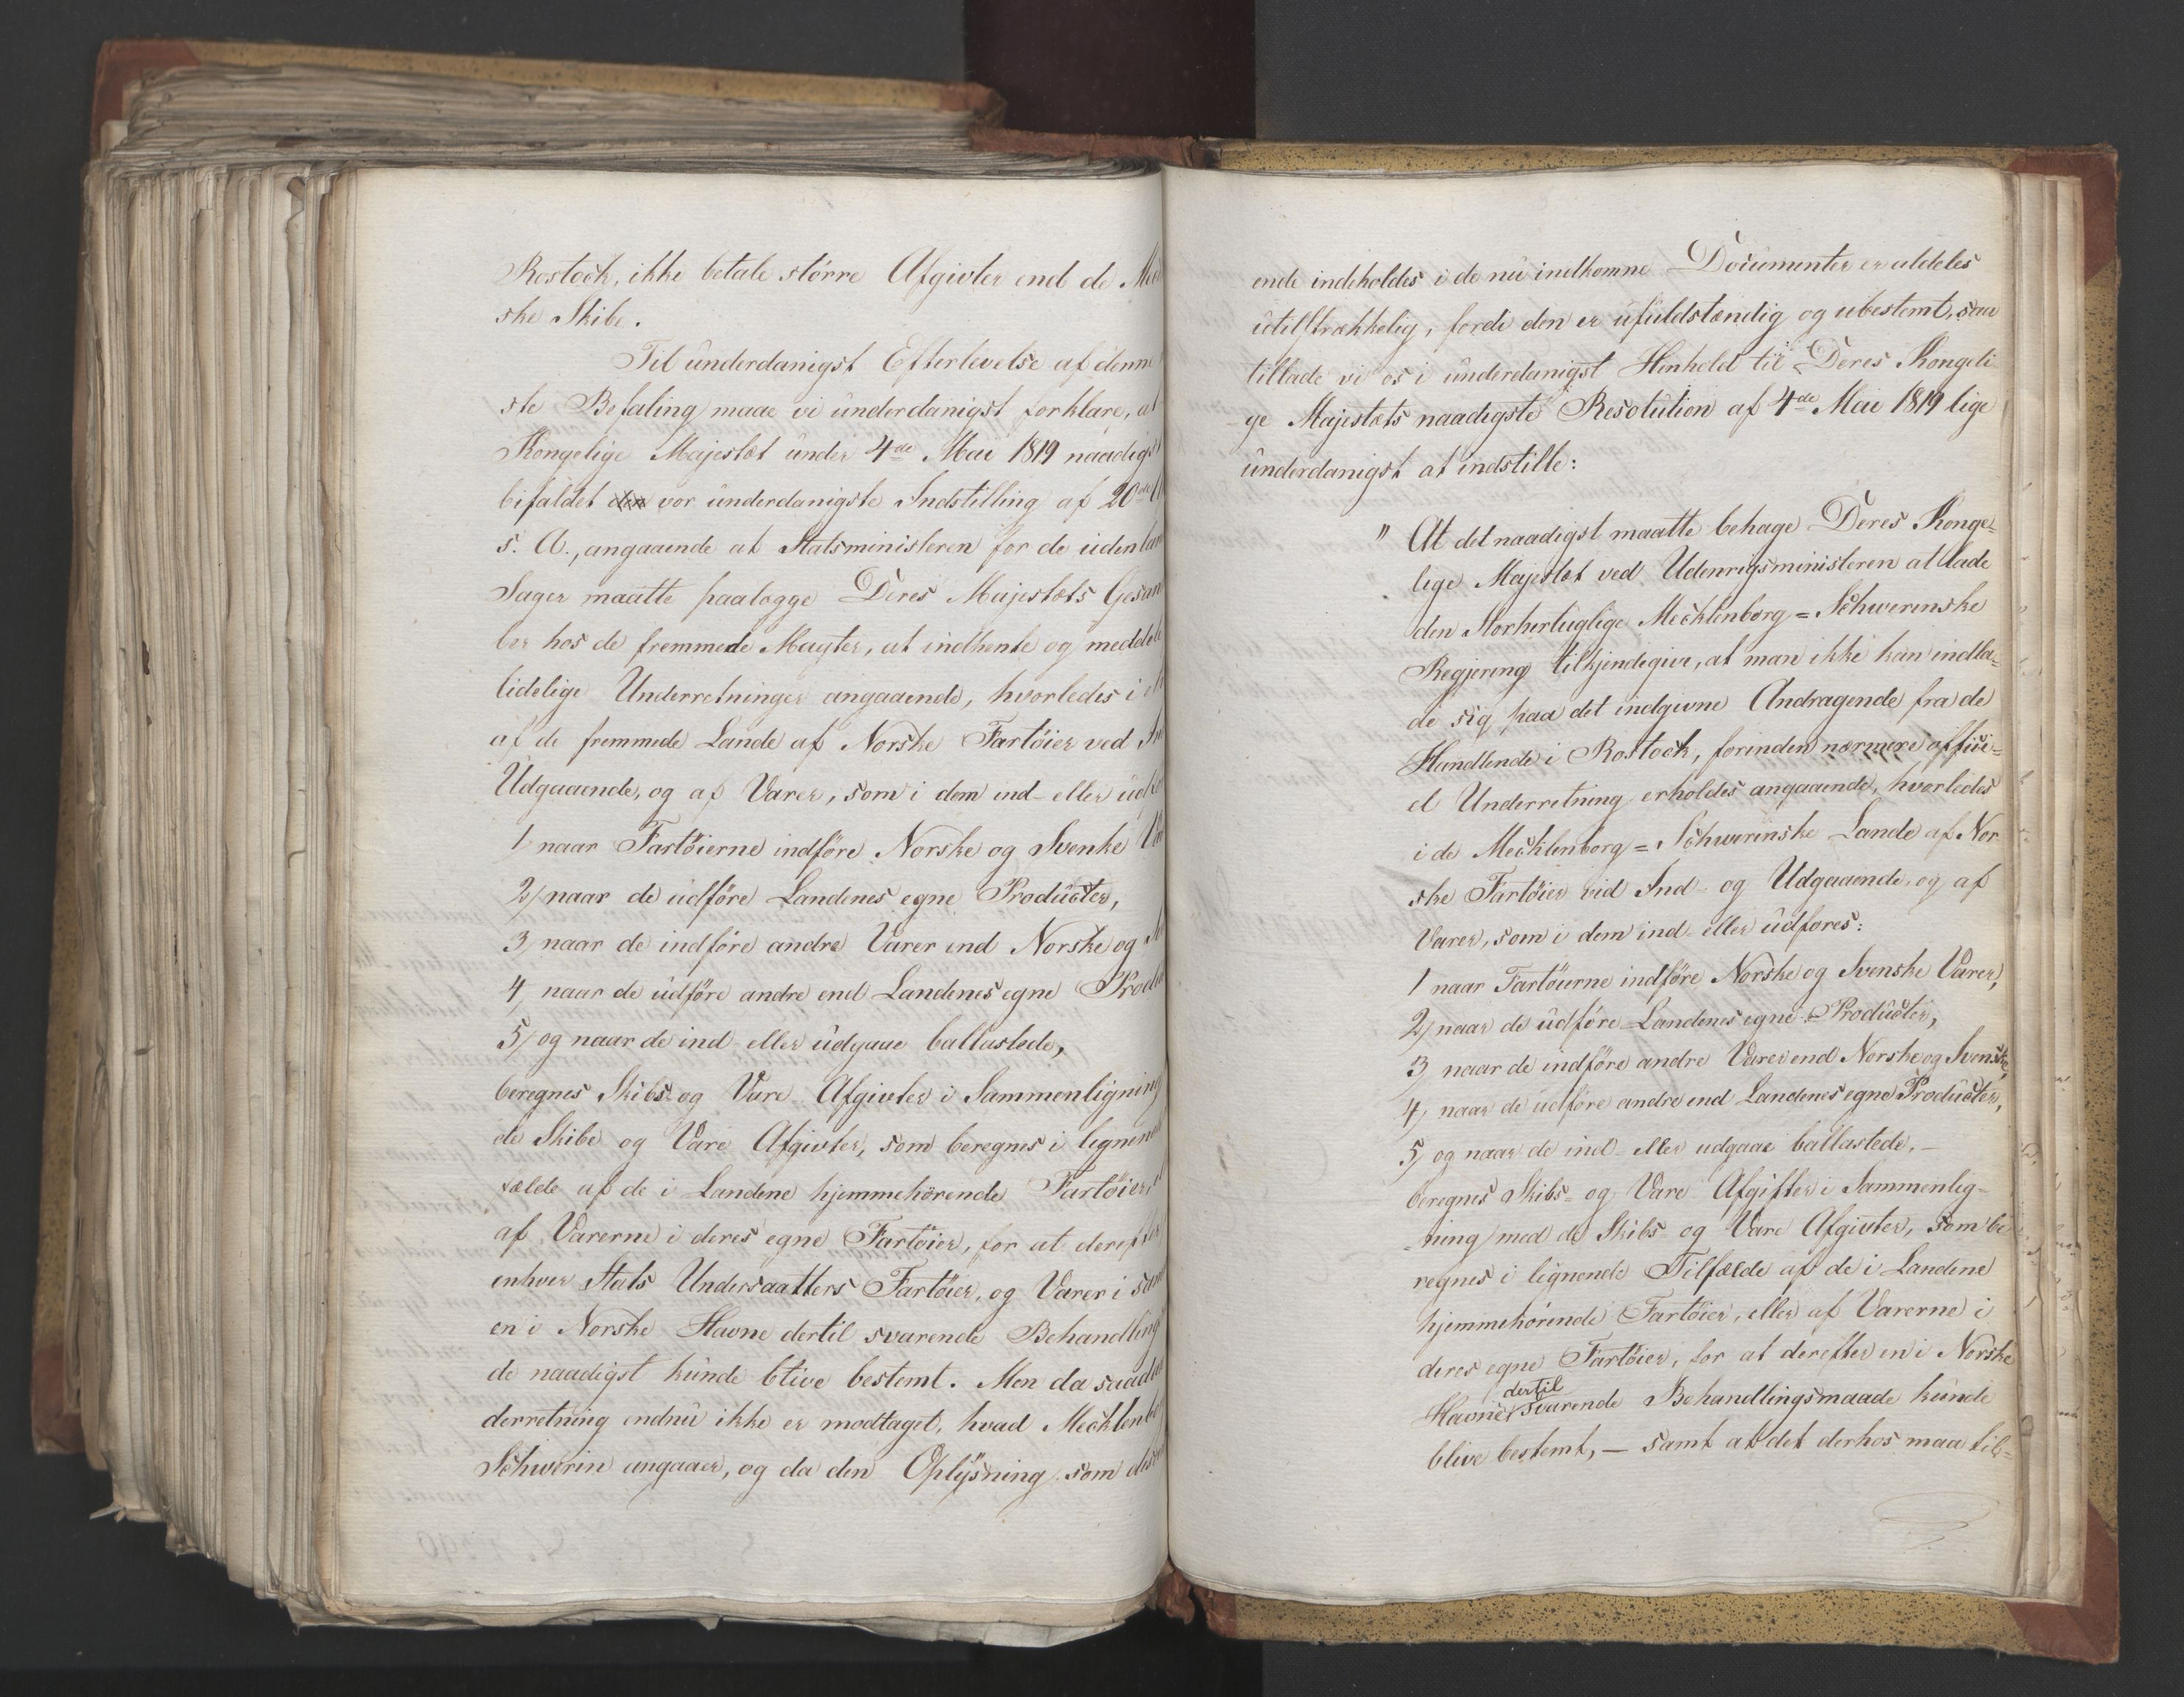 Rostock, ikke betale større Afgivter end de
ske Skibe.
Til underdanigst Efterlevelse af denne
ste Befaling maae vi underdanigst forklare, at
Kongelige Majestæt under 4de Mai 1819 naadigst
bifaldet den vor underdanigste Indstilling af 20de
s. A., angaaende at Statsministeren for de uden
Sager maatte paalægge Deres Majestæts Gesan
ter hos de fremmede Magter, at indhente og meddele
lidelige Underretninger angaaende, hvorledes i
af de fremmede Lande af Norske Fartøier ved
Udgaaende, og af Varer, som i dem ind- eller
1 naar Fartøierne indføre Norske og Svenke
2, naar de udføre Landenes egne Producter,
3, naar de indføre andre Varer end Norske og
4, naar de udføre andre end Landenes egne
5, og naar de ind- eller udgaae ballastede,
beregnes Skibs- og Vare Afgivter i Sammenligning
de Skibs og Vare Afgivter, som beregnes i lignende
fælde af de i Landene hjemmehørende Fartøier,
af Varerne i deres egne Fartøier, for at derefter
enhver Stats Undersaatters Fartøier, og Varer i
en i Norske Havne dertil svarende Behandling
de naadigst kunde blive bestemt. Men da
derretning endnu ikke er modtaget, hvad
Schwerin angaaer, og da den Oplysning som
ende indeholdes i de nu indkomne Documenter er aldeles
utilstrækkelig, fordi den er ufuldstændig og ubestemt, saa
tillade vi os i underdanigst Henhold til Deres Kongeli
ge Majestæts naadigste Resolution af 4de Mai 1819 lige
underdanigst at indstille:
" At det naadigst maatte behage Deres Konge-
lige Majestæt ved Udenrigsministeren at lade
den Storhertuglige Mecklenborg=Schwerinske
Regjering tilkjendegive, at man ikke kan indla-
de sig paa det indgivne Andragende fra de
Handlende i Rostock, forinden nærmere offici-
el Underretning erholdes angaaende, hvorledes
i de Mecklenborg=Schwerinske Lande af Nor
ske Fartøier ved Ind- og Udgaaende, og af
Varer, som i dem ind- eller udføres:
1 naar Fartøierne indføre Norske og Svenske Varer,
2, naar de udføre Landenes egne Producter,
3, naar de indføre andre Varer end Norske og Svenske,
4, naar de udføre andre end Landenes egne Producter,
5, og naar de ind- eller udgaae ballastede, –
beregnes Skibs- og Vare Afgifter i Sammenlig-
-ning med de Skibs- og Vare Afgivter, som be
regnes i lignende Tilfælde af de i Landene
hjemmehørende Fartøier, eller af Varerne i
deres egne Fartøier, for at derefter en i Norske
dertil
Havne svarende Behandlingsmaade kunde
blive bestemt, – samt at det derhos maa til-